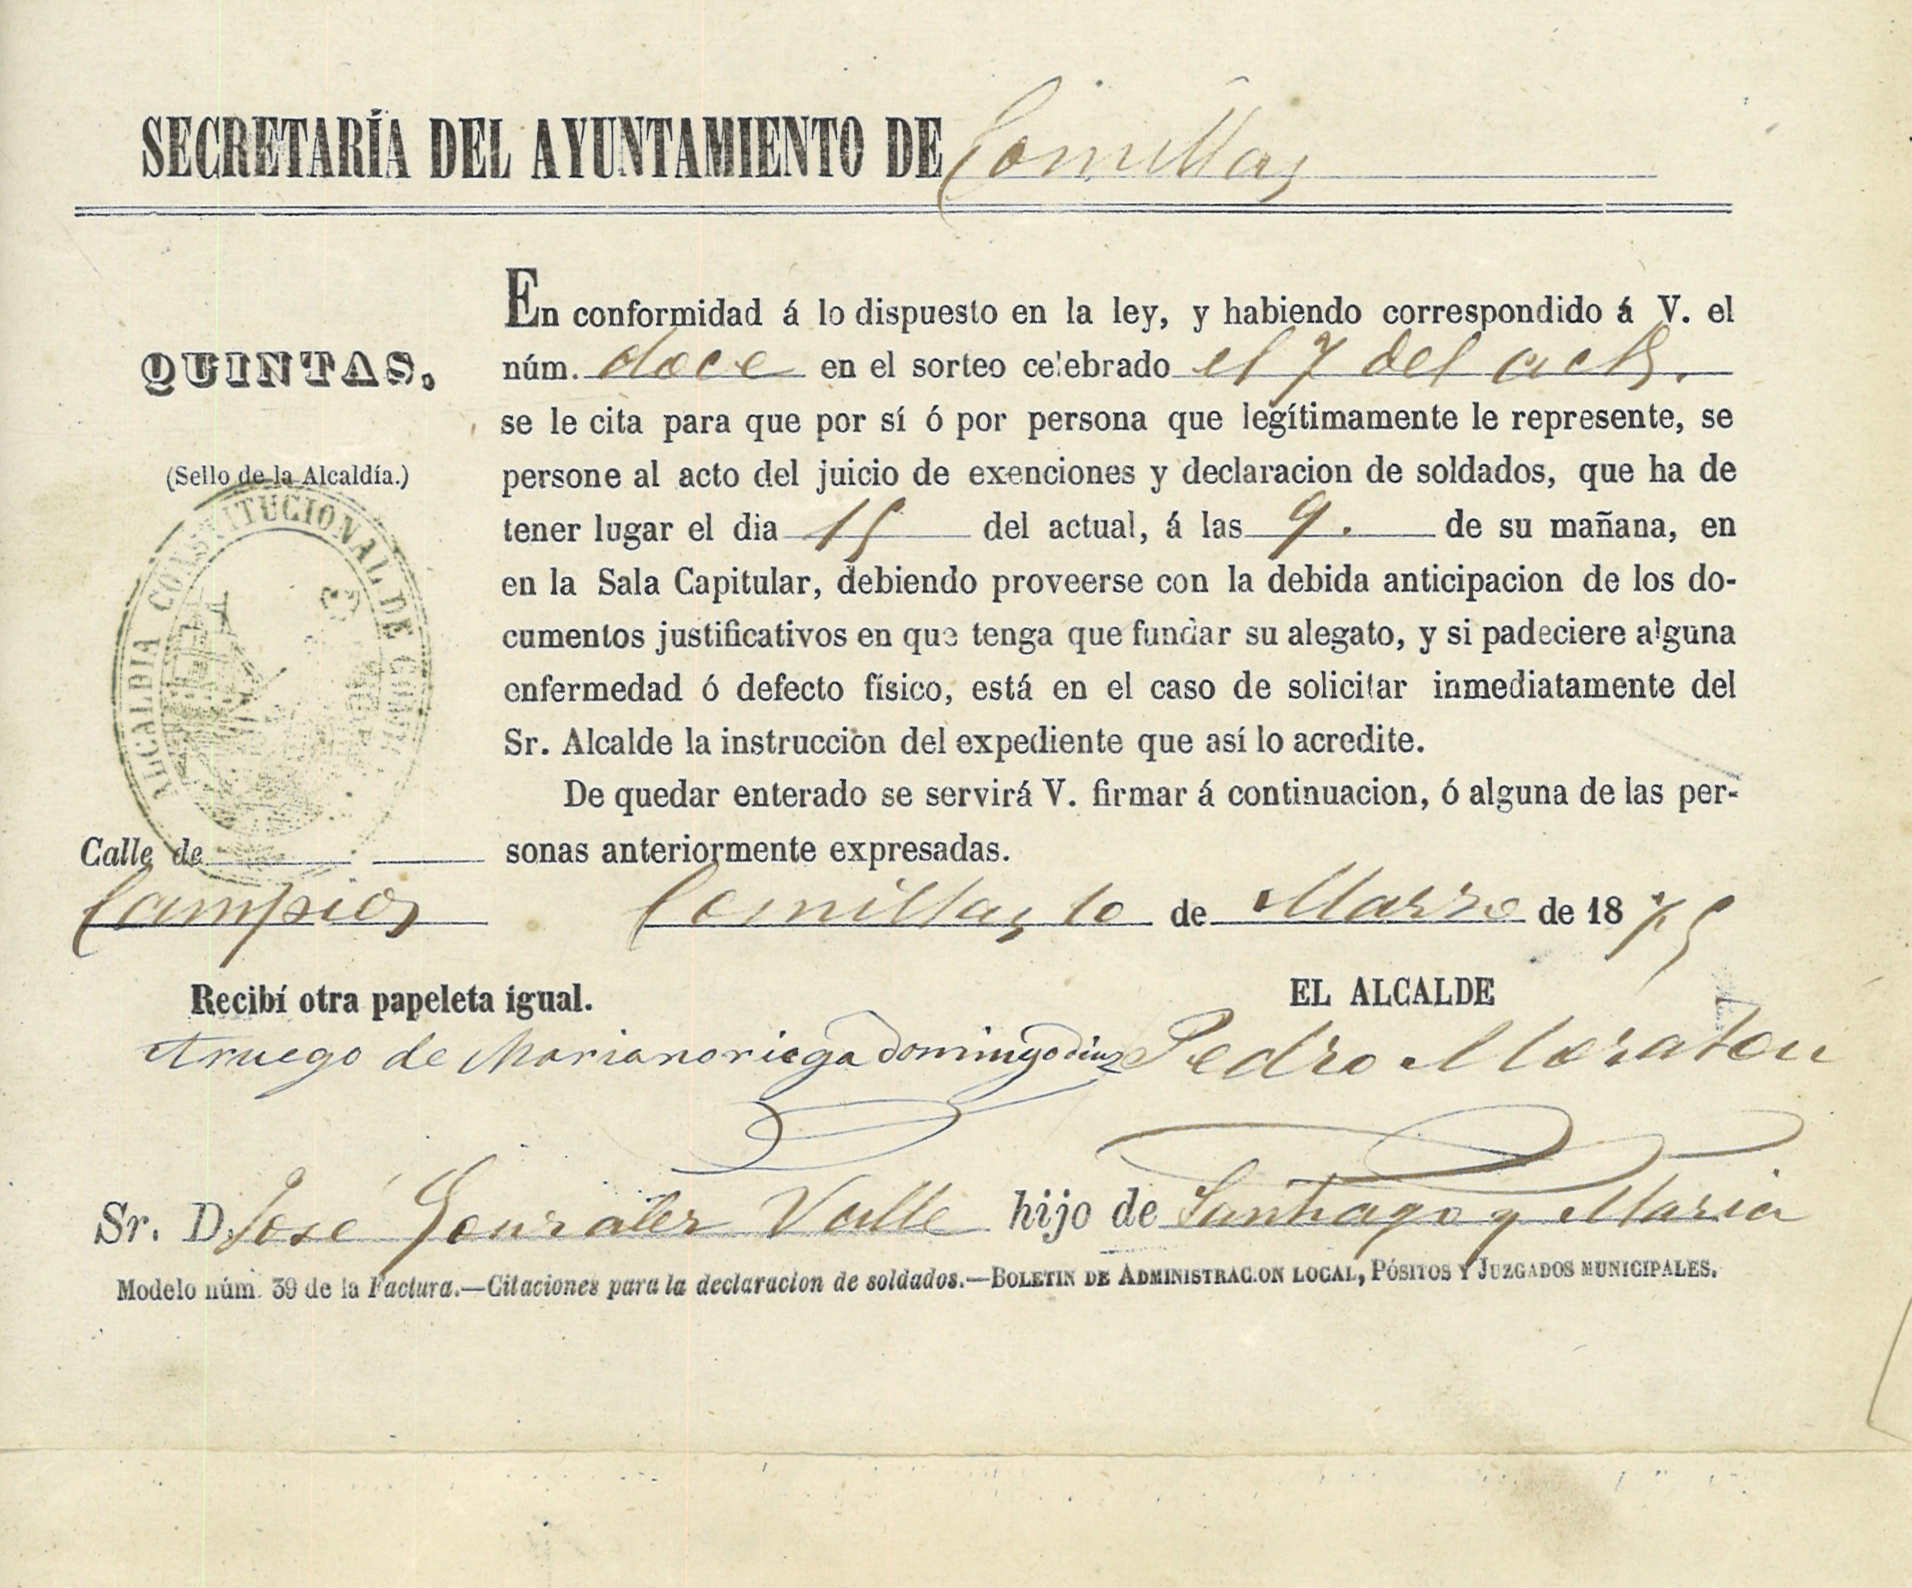 SECRETARÍA DEL AYUNTAMIENTO DE Comillas
QUINTAS.
(Sello de la Alcaldía.)
ALCALDIA CONSTITUCIONAL DE
En conformidad á lo dispuesto en la ley, y habiendo correspondido á V. el
núm. doce en el sorteo celebrado el 7 del actl.
se le cita para que por sí ó por persona que legítimamente le represente, se
persone al acto del juicio de exenciones y declaracion de soldados, que ha de
tener lugar el dia 15 del actual, á las 9. de su mañana, en
en la Sala Capitular, debiendo proveerse con la debida anticipacion de los do-
cumentos justificativos en que tenga que fundar su alegato, y si padeciere alguna
enfermedad ó defecto físico, está en el caso de solicitar inmediatamente del
Sr. Alcalde la instruccion del expediente que así lo acredite.
De quedar enterado se servirá V. firmar á continuacion, ó alguna de las per-
sonas anteriormente expresadas.
Calle de
Campios
Comillas 10 de Marzo de 1875
Recibí otra papeleta igual.
Arruego de Marianoriega Domingo diaz
EL ALCALDE
Pedro Moraton
Sr. D. José Gonzalez Valle hijo de Santiago y Maria
Modelo núm. 39 de la Factura.—Citaciones para la declaracion de soldados.—BOLETIN DE ADMINISTRACION LOCAL, PÓSITOS Y JUZGADOS MUNICIPALES.